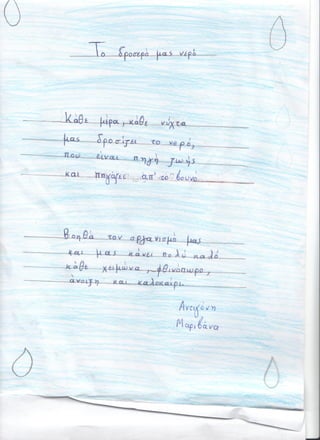 Το δροσερό μας νερό
Κάθε μέρα, κάθε νύχτα
μας δροσίζει το νερό,
που είναι πηγή ζωής
και πηγάζει απ' το βουνό
Βοηθά τον οργανισμό μας
και μας κάνει πολύ καλό
κάθε χειμώνα, φθινόπωρο,
άνοιξη και καλοκαίρι
Αντιγόνη
Μαριβάνα